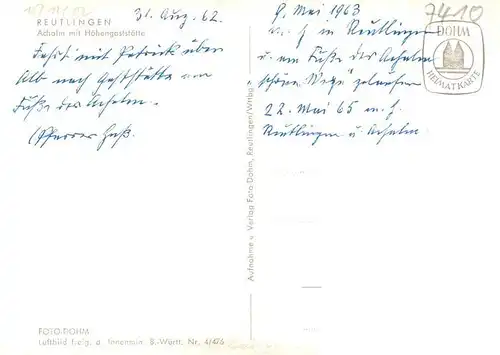 REUTLINGEN
Achalm mit Höhengaststätte
31. Aug. 62.
Fahrt mit Patrick über
Alb nach Gaststätte am
Fuße der Achalm.
(Pfarrer Haß.
9. Mai 1963
m. f in Reutlingen
u. am Fuße der Achalm
schöne Wege gelaufen
22. Mai 65 m. f.
Reutlingen u Achalm.
7410
DOHM
HEIMATKARTE
Aufnahme u. Verlag Foto-Dohm, Reutlingen/Wttbg.
FOTO-DOHM
Luftbild freig. d. Innenmin. B.-Württ. Nr. 4/476